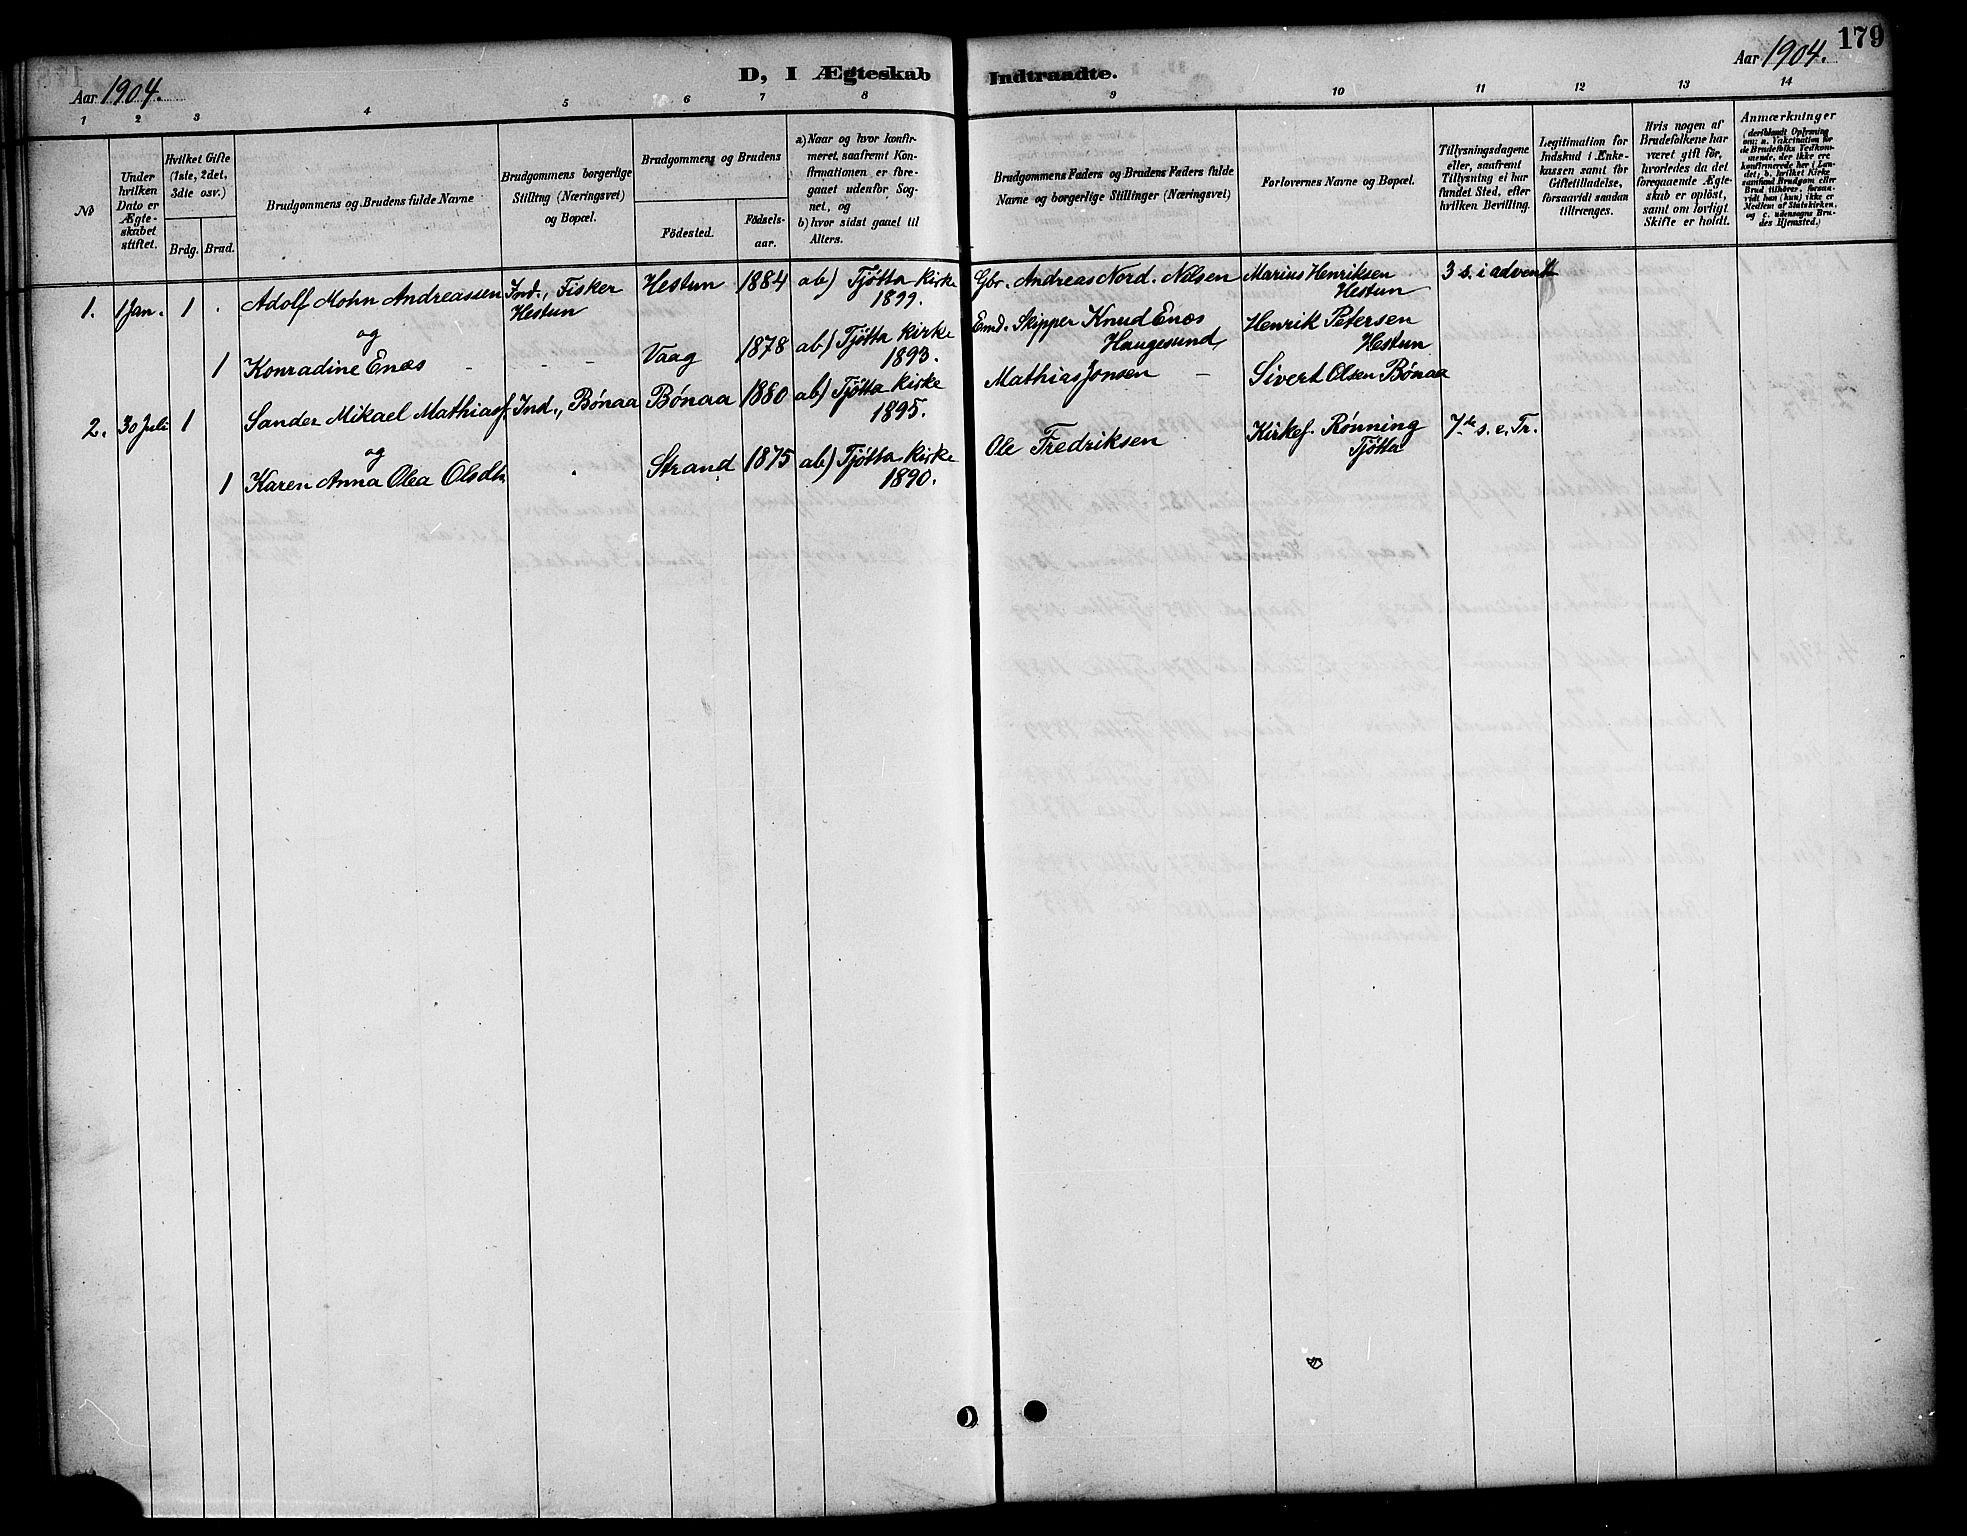 179
Aar 1904.
D, I Ægteskab Indtraadte.
Aar 1904.
1 2 3 4 5 6 7 8 9 10 11 12 13 14
No
Under hvilken Dato er Ægteskabet stiftet.
Hvilket Gifte (1ste, 2det, 3die osv.)
Brdg. Brud.
Brudgommens og Brudens fulde Navne
Brudgommens borgerlige Stilling (Næringsvei) og Bopæl.
Brudgommens og Brudens
Födested. Födselsaar.
a) Naar og hvor konfirmeret, saafremt Konfirmationen er foregaaet udenfor Sognet, og
b) hvor sidst gaaet til Alters.
Brudgommens Faders og Brudens Faders fulde Navne og borgerlige Stillinger (Næringsvei)
Forlovernes Navne og Bopæl.
Tillysningsdagene eller, saafremt Tillysning ei har fundet Sted, efter hvilken Bevilling.
Legitimation for Indskud i Ænkekassen samt for Giftetilladelse, forsaavidt saadan tiltrænges.
Hvis nogen af Brudefolkene har været gift för, hvorledes da det foregaaende Ægteskab er oplöst, samt om lovligt Skifte er holdt.
Anmærkninger
(deriblandt Oplysning om: a. Vakcination for de Brudefolks Vedkommende, der ikke ere konfirmerede her i Landet, b. hvilket Kirkesamfund Brudgom eller Brud tilhörer, forsaavidt han (hun) ikke er Medlem af Statskirken, og c. udensogns Brudes Hjemsted.)
1. 1 Jan. 1 . Adolf Mohn Andreassen Ind., Fisker Hestun Hestun 1884 ab) Tjøtta Kirke 1899. Gbr. Andreas Nord. Nilsen Marius Henriksen Hestun 3 s. i advent
og
1 Konradine Enæs - - - Vaag 1878 ab) Tjøtta Kirke 1893. Emd. Skipper Knud Enæs Haugesund Henrik Petersen Hestun
2. 30 Juli 1 Sander Mikael Mathiasf. Ind., Bönaa Bönaa 1880 ab) Tjøtta Kirke 1895. Mathias Jonsen - Sivert Olsen Bönaa
og
1 Karen Anna Olea Olsdtr. Strand 1875 ab) Tjøtta Kirke 1890. Ole Fredriksen Kirkes. Rönning Tjøtta 7de s. e. Tr.